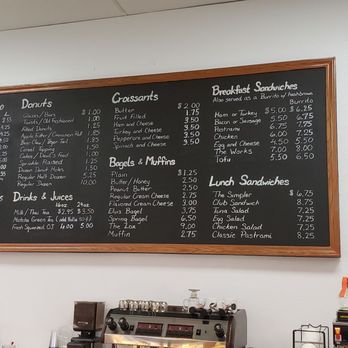 Donuts
Glazed / Bars $1.00
Twists / Old Fashioned
Filled Donuts
Apple Fritter / Cinnamon Roll
Bear Claw /
Cereal Topping
Cakes / Devil's Food
Sprinkle Raised
Dozen Donut Holes
Regular Half Dozen 5.25
Regular Dozen 10.00
Drinks & Juices
16oz 24oz
Milk / Thai Tea $2.95 $3.50
Matcha Green Tea
Fresh Squeezed OJ 4.00 5.00
Croissants
Butter $2.00
Fruit Filled 1.75
Ham and Cheese 3.50
Turkey and Cheese 3.50
Pepperoni and Cheese 3.50
Spinach and Cheese 3.50
Bagels & Muffins
Plain $1.25
Butter / Honey 2.50
Peanut Butter 2.50
Regular Cream Cheese 2.75
Flavored Cream Cheese 3.00
Elvis Bagel 3.75
Spring Bagel 5.00
The Lox 9.00
Muffin 2.75
Breakfast Sandwiches
Also served as a Burrito w/ hashbrown
Burrito
Ham or Turkey $5.00 $6.25
Bacon or Sausage 5.50 6.75
Pastrami 6.75 7.75
Chicken 6.00 7.25
Egg and Cheese 4.50 5.50
The Works 7.00 8.00
Tofu 5.50 6.50
Lunch Sandwiches
The Simpler $6.75
Club Sandwich 8.75
Tuna Salad 7.25
Egg Salad 7.25
Chicken Salad 7.25
Classic Pastrami 8.25